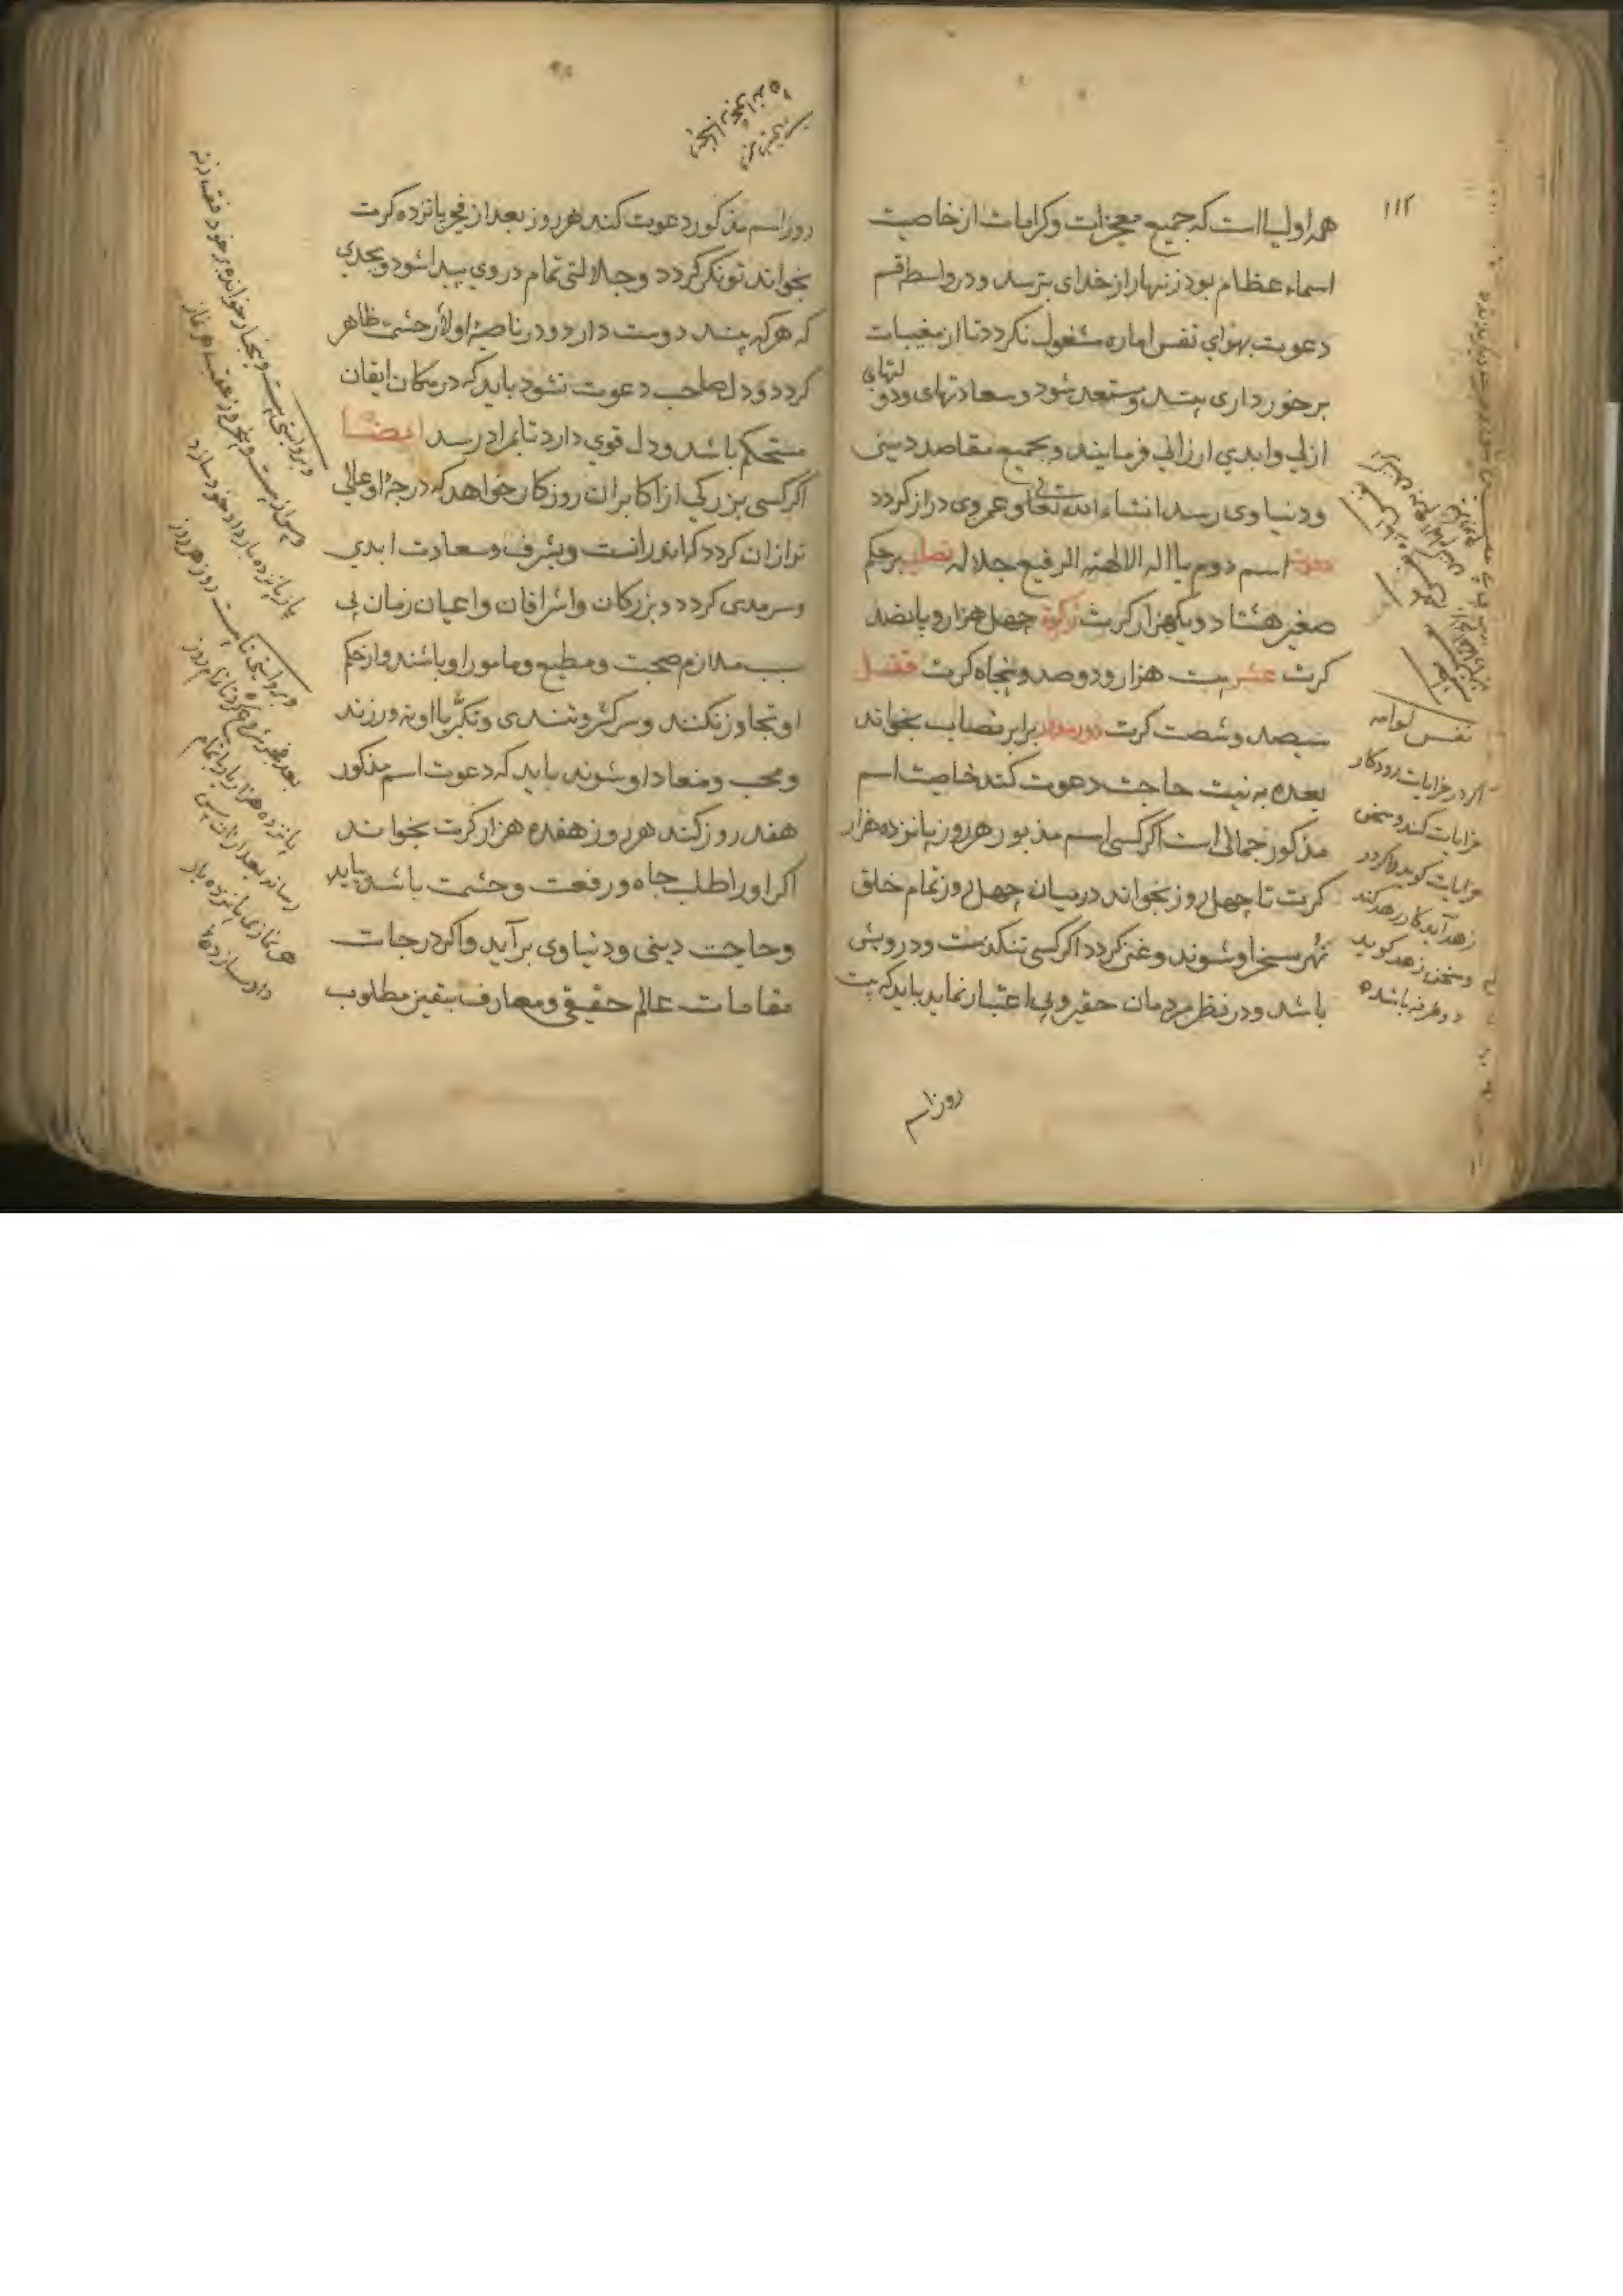 ۱۱۲
همه اولیا است که جمیع معجزات وکرامات از خاصیت
اسماء عظام بود زنهار از خدای بترسد و در واسط قسم
دعوت بهوای نفس اماره مشغول نکردد تا از مغیبات
برخورداری بیند ومستعد شود وسعادتهای ودو لتهای
ازلی وابدی ارزانی فرمایند وبجمیع مقاصد دینی
ودنیاوی رسد انشاء الله تعالی وعمر وی دراز کردد
اسم دوم یا اله الالهة الرفیع جلاله نصاب برحکم
صغیر هشتاد ویکهزار کرت زکوة چهل هزار و پانصد
کرت عشر بیست هزار ودوصد وپنجاه کرت قفل
سیصد وشصت کرت دور مدور برابر نصاب بخواند
بعده به نیت حاجت دعوت کند خاصیت اسم
مذکور جمالی است اکر کسی اسم مذبور هر روز پانزده هزار
کرت تا چهل روز بخواند درمیان چهل روز تمام خلق
شهر مسخر او شوند وغنی کردد اکر کسی تنکدست ودرویش
باشد ودر نظر مردمان حقیر وبی اعتبار نماید باید که بیست
روز اسم
نفس لوامه
اکر در خرابات رود کار
خرابات کند وسخن
خرابات کوید واکر در
زهد آید کار زهد کند
وسخن زهد کوید
دو طرفه باشد
روز اسم مذکور دعوت کند هر روز بعد از فجر پانزده کرت
بخواند تونکر کردد وجلالتی تمام در وی پیدا شود وبحدی
که هرکه بیند دوست دارد ودر ناصیهٔ او لأر حشمت ظاهر
کردد ودل صاحب دعوت نشود باید که در مکان ایقان
مستحکم باشد ودل قوی دارد تا بمراد رسد ایضا
اکر کسی بزرکی از اکابران روزکار خواهد که درجهٔ او عالی
تر ازان کردد که اندرانست وبشرف وسعادت ابدی
وسرمدی کردد وبزرکان واشرافان واعیان زمان بی
سبب ملازم صحبت ومطیع ومامور او باشند واز حکم
او تجاوز نکنند وسرکشی وتندی وتکبر با او نه ورزند
ومحب ومنعاد او شوند باید که دعوت اسم مذکور
هفده روز کند هر روز هفده هزار کرت بخواند
اکر او را طلب جاه ورفعت وحشمت باشد بیابد
وحاجت دینی ودنیاوی برآید واکر درجات
مقامات عالم حقیقی ومعارف یقین مطلوب
وبروایتی بیست وپنجبار خوانده بر خود نفث زند
پانزده بار داد خود سازد
وبروایتی تا بیست روز هر روز
پانزده هزار بار باتمام
رساند بعد ازان پس
هر نمازی پانزده بار
داد سازد